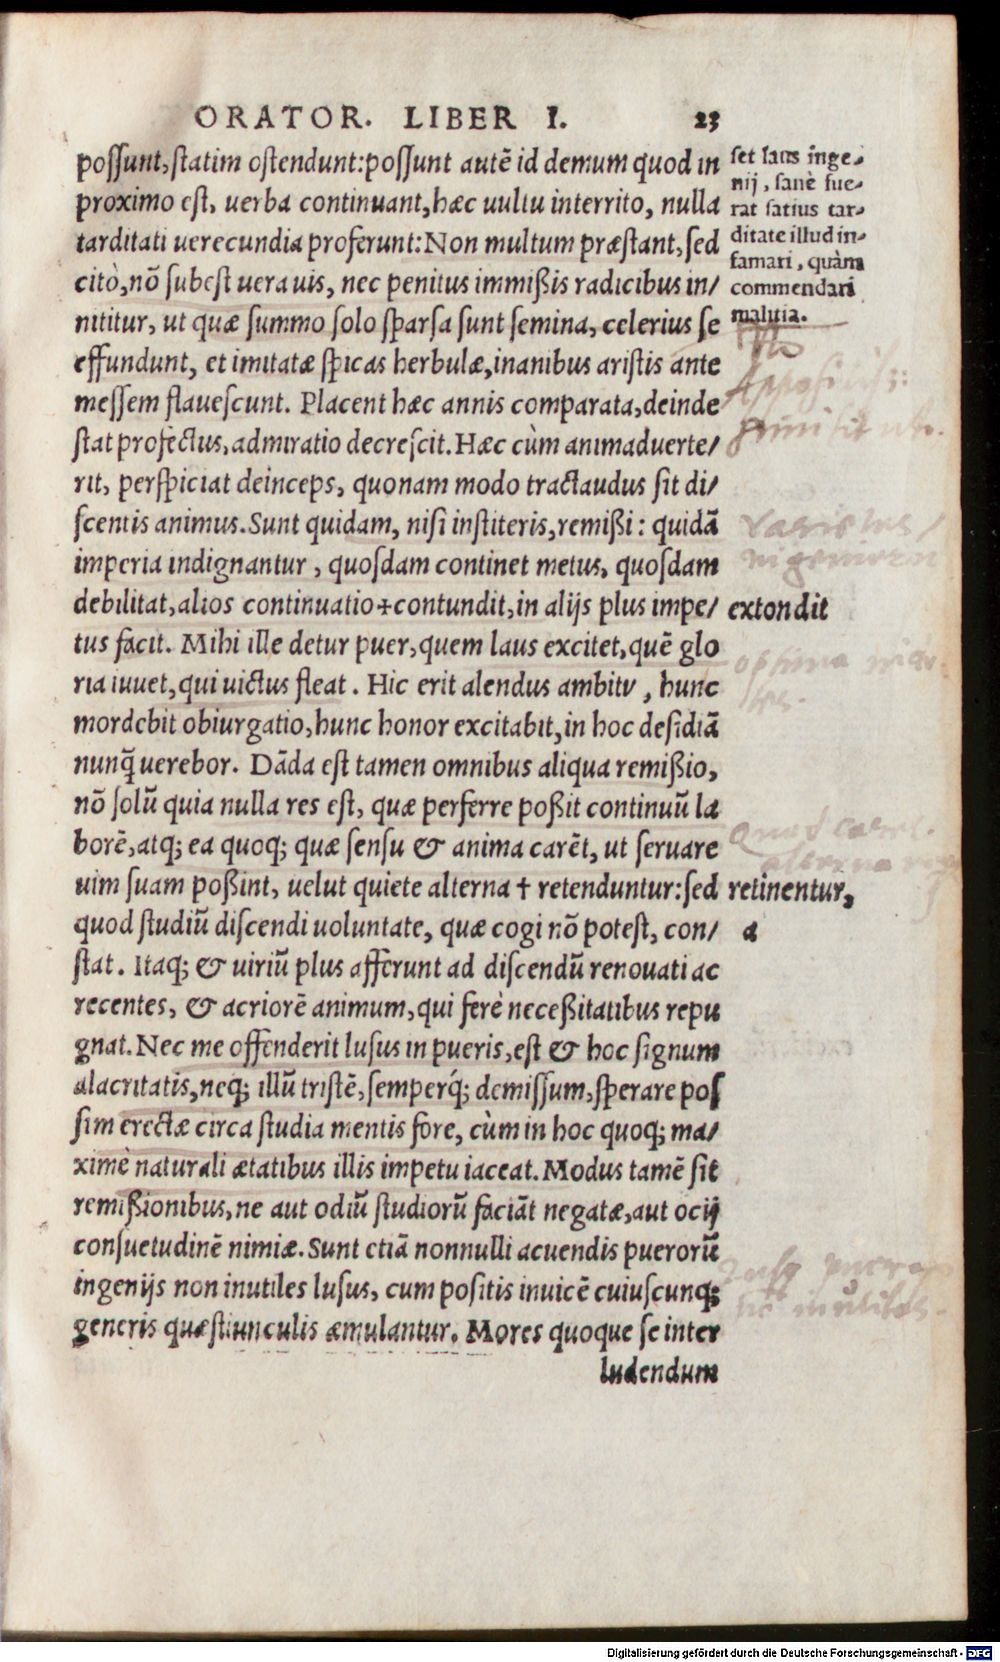 ORATOR. LIBER I. 23
poſſunt, ſtatim oſtendunt: poſſunt autē id demum quod in
proximo eſt, uerba continuant, hæc uultu interrito, nulla
tarditati uerecundia proferunt: Non multum præſtant, ſed
citò, nō ſubeſt uera uis, nec penitus immißis radicibus in/
nititur, ut quæ ſummo ſolo ſparſa ſunt ſemina, celerius ſe
effundunt, et imitatæ ſpicas herbulæ, inanibus ariſtis ante
meſſem flaueſcunt. Placent hæc annis comparata, deinde
ſtat profectus, admiratio decreſcit. Hæc cùm animaduerte/
rit, perſpiciat deinceps, quonam modo tractaudus ſit di/
ſcentis animus. Sunt quidam, niſi inſtiteris, remißi: quidā
imperia indignantur, quoſdam continet metus, quoſdam
debilitat, alios continuatio+contundit, in alijs plus impe/
tus facit. Mihi ille detur puer, quem laus excitet, quē glo
ria iuuet, qui uictus fleat. Hic erit alendus ambitu, hunc
mordebit obiurgatio, hunc honor excitabit, in hoc deſidiā
nunq̄ uerebor. Dāda eſt tamen omnibus aliqua remißio,
nō ſolū quia nulla res eſt, quæ perferre poßit continuū la
borē, atq; ea quoq; quæ ſenſu & anima carēt, ut ſeruare
uim ſuam poßint, uelut quiete alterna † retenduntur: ſed
quod ſtudiū diſcendi uoluntate, quæ cogi nō poteſt, con/
ſtat. Itaq; & uiriū plus afferunt ad diſcendū renouati ac
recentes, & acriorē animum, qui ferè neceßitatibus repu
gnat. Nec me offenderit luſus in pueris, eſt & hoc ſignum
alacritatis, neq; illū triſtē, ſemperq́; demiſſum, ſperare poſ
ſim erectæ circa ſtudia mentis fore, cùm in hoc quoq; ma/
ximè naturali ætatibus illis impetu iaceat. Modus tamē ſit
remißionibus, ne aut odiū ſtudiorū faciāt negatæ, aut ocij
conſuetudinē nimiæ. Sunt etiā nonnulli acuendis puerorū
ingenijs non inutiles luſus, cum poſitis inuicē cuiuſcunq;
generis quæſtiunculis æmulantur. Mores quoque ſe inter
ludendum
ſet laus inge-
nij, ſanè fue-
rat ſatius tar-
ditate illud in-
famari, quàm
commendari
malitia.
extondit
optima
Quod caret
alterna
retinentur,
a
inutiles
Digitalisierung gefördert durch die Deutsche Forschungsgemeinschaft - DFG